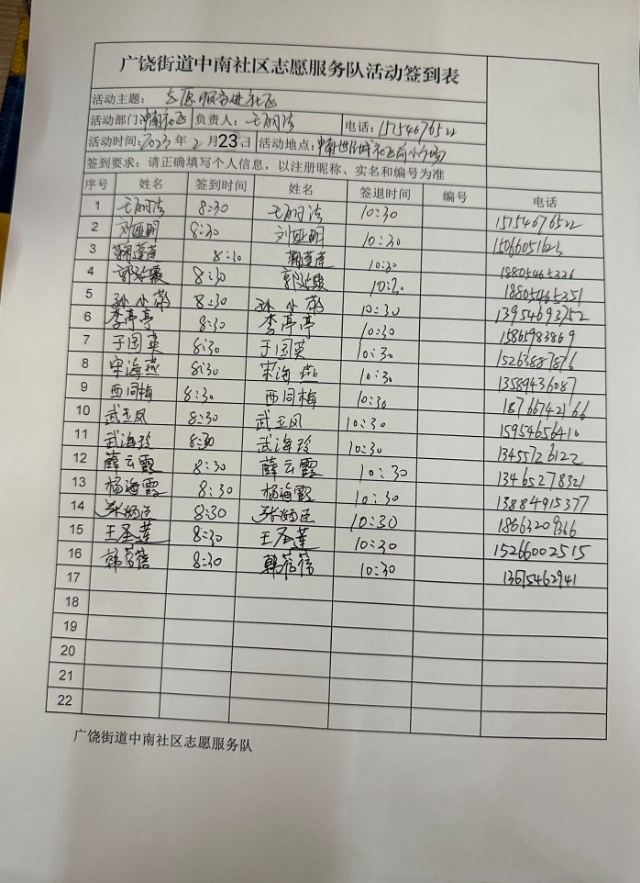 广饶街道中南社区志愿服务队活动签到表
活动主题：志愿服务进社区
活动部门：中南社区 负责人：王丽洁 电话：15754676522
活动时间：2023年2月23日 活动地点：中南世纪城社区前小广场
签到要求：请正确填写个人信息，以注册昵称、实名和编号为准
序号 姓名 签到时间 姓名 签退时间 编号 电话
1 王丽洁 8:30 王丽洁 10:30 15754676522
2 刘亚明 8:30 刘亚明 10:30 15066051623
3 8:30 10:30 18805465326
4 8:30 10:30 18805465351
5 孙小荣 8:30 孙小荣 10:30 13954693752
6 李亭亭 8:30 李亭亭 10:30 15865983869
7 于国英 8:30 于国英 10:30 15263887876
8 宋海燕 8:30 宋海燕 10:30 13589436087
9 西同梅 8:30 西同梅 10:30 18766742166
10 武玉凤 8:30 武玉凤 10:30 15954656416
11 武海玲 8:30 武海玲 10:30 13455726122
12 薛云霞 8:30 薛云霞 10:30 13465278321
13 杨海霞 8:30 杨海霞 10:30 13884915377
14 8:30 10:30 18663209366
15 王圣莲 8:30 王圣莲 10:30 15266002515
16 韩蓓蓓 8:30 韩蓓蓓 10:30 13675462941
17
18
19
20
21
22
广饶街道中南社区志愿服务队